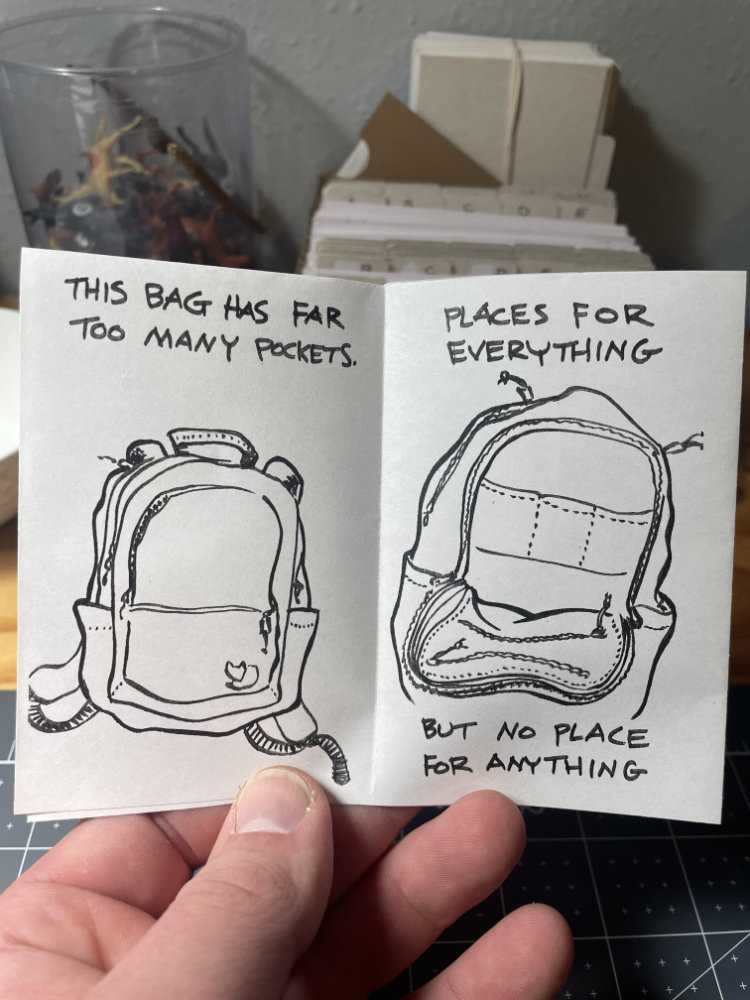 THIS BAG HAS FAR
TOO MANY POCKETS.
PLACES FOR
EVERYTHING
BUT NO PLACE
FOR ANYTHING